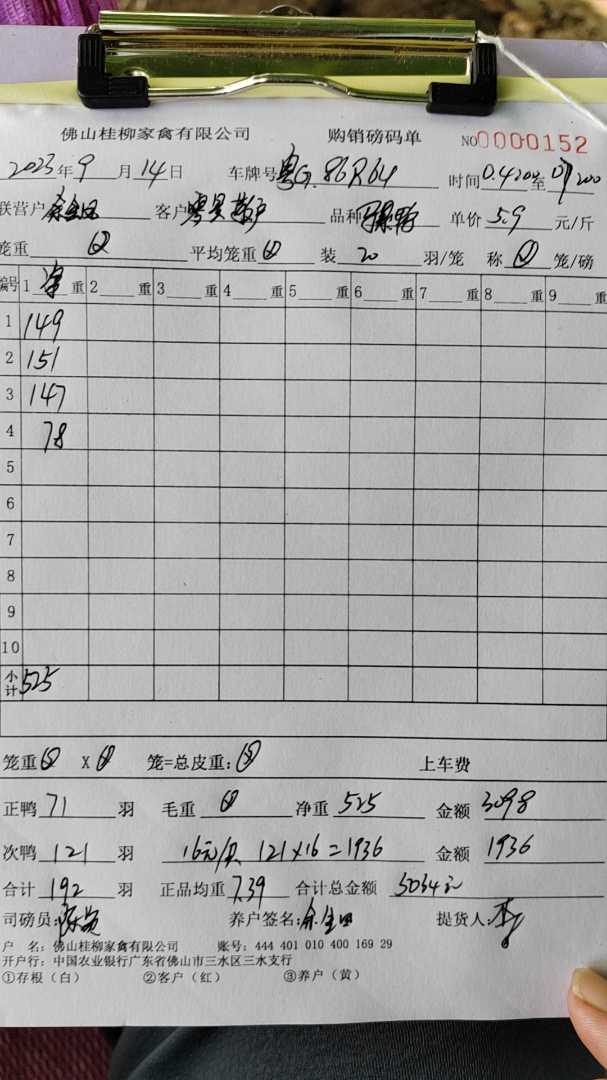 佛山桂柳家禽有限公司 购销磅码单 NO0000152
2023年9月14日 车牌号粤G.86R64 时间0.4200至
联营户 客户 品种 单价5.9元/斤
笼重 平均笼重 装20羽/笼 称 笼/磅
编号 1净重 2重 3重 4重 5重 6重 7重 8重 9重
1 149
2 151
3 147
4 78
5
6
7
8
9
10
小计 525
笼重 X 笼=总皮重: 上车费
正鸭71羽 毛重 净重525 金额3098
次鸭121羽 16元/只 121×16=1936 金额1936
合计192羽 正品均重7.39 合计总金额5034元
司磅员: 养户签名: 提货人:
户 名:佛山桂柳家禽有限公司 账号:444 401 010 400 169 29
开户行:中国农业银行广东省佛山市三水区三水支行
①存根（白） ②客户（红） ③养户（黄）